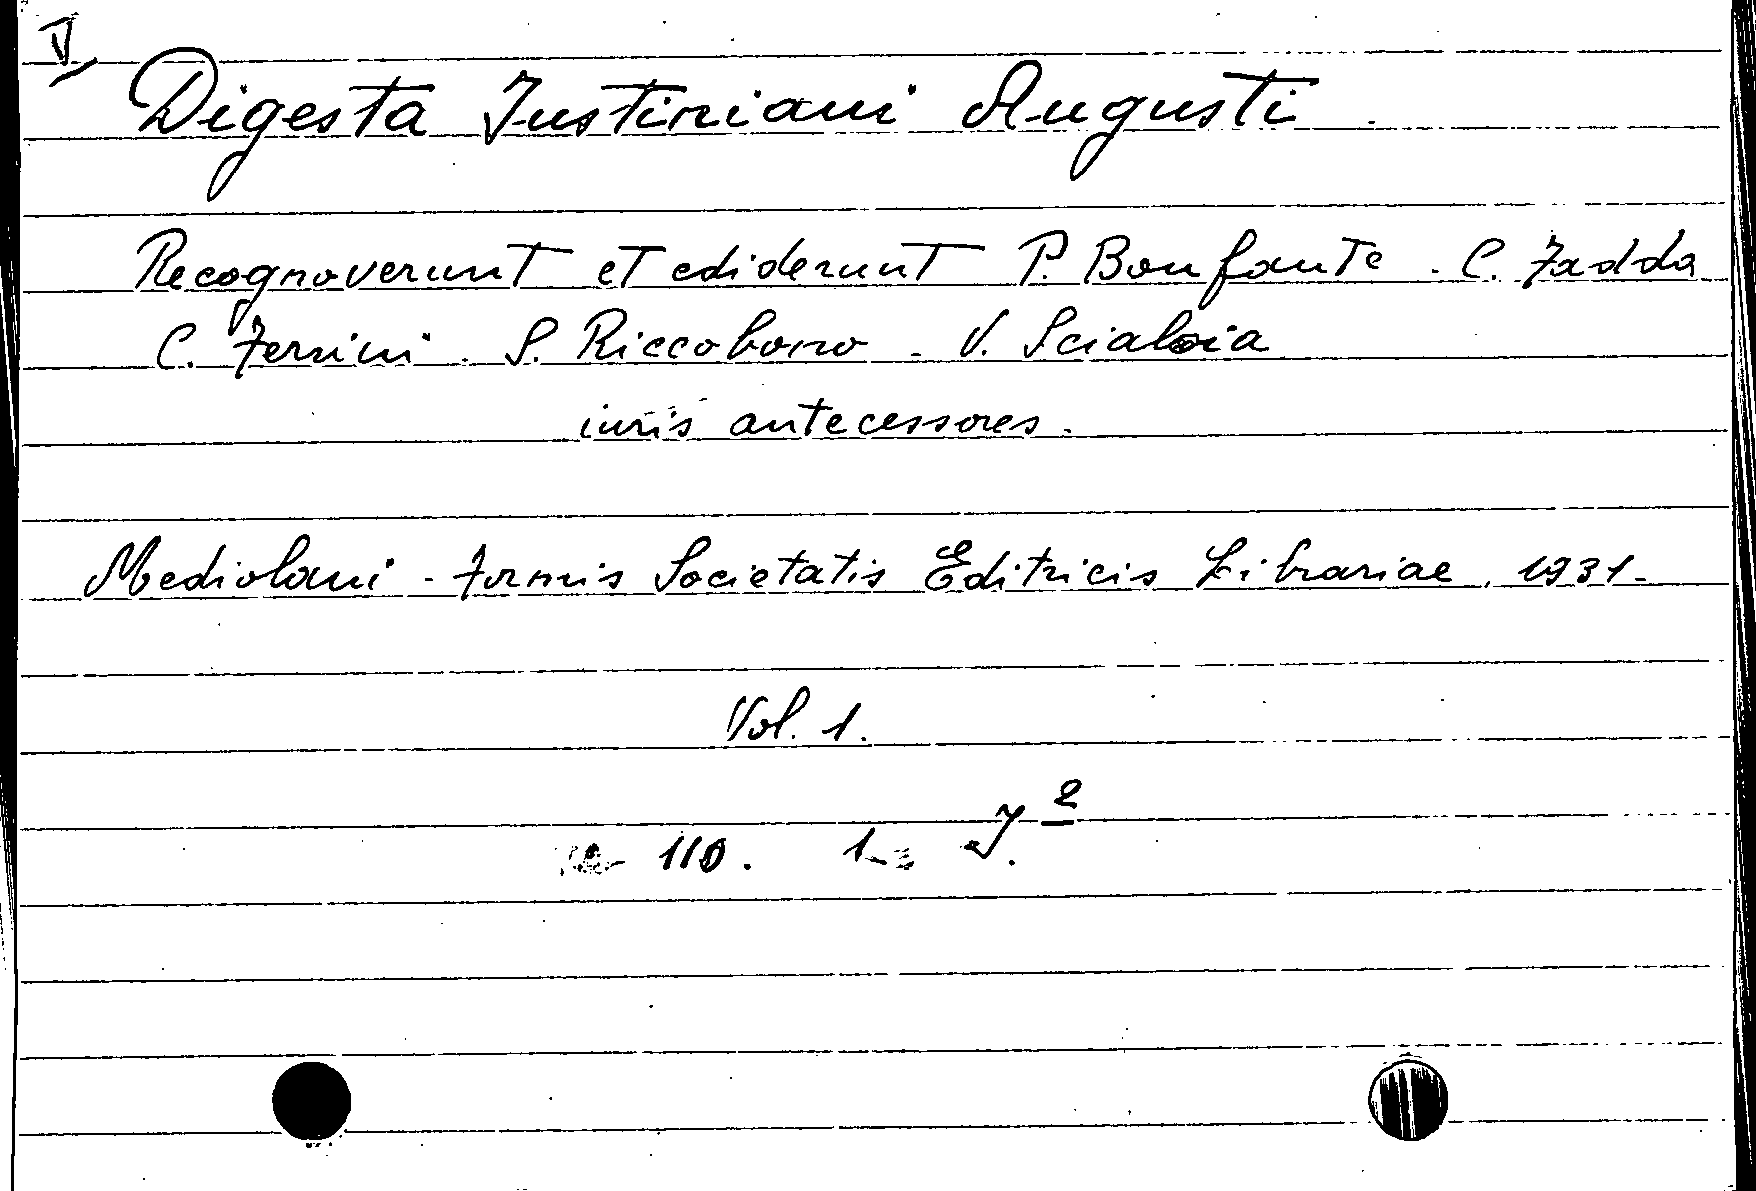 V
Digesta Justiniani Augusti.
Recognoverunt et ediderunt P. Bonfante. C. Fadda
C. Ferrini. S. Riccobono. V. Scialoia
iuris antecessores.
Mediolani - Formis Societatis Editricis Librariae, 1931.
Vol. 1.
110. 1 J. 2